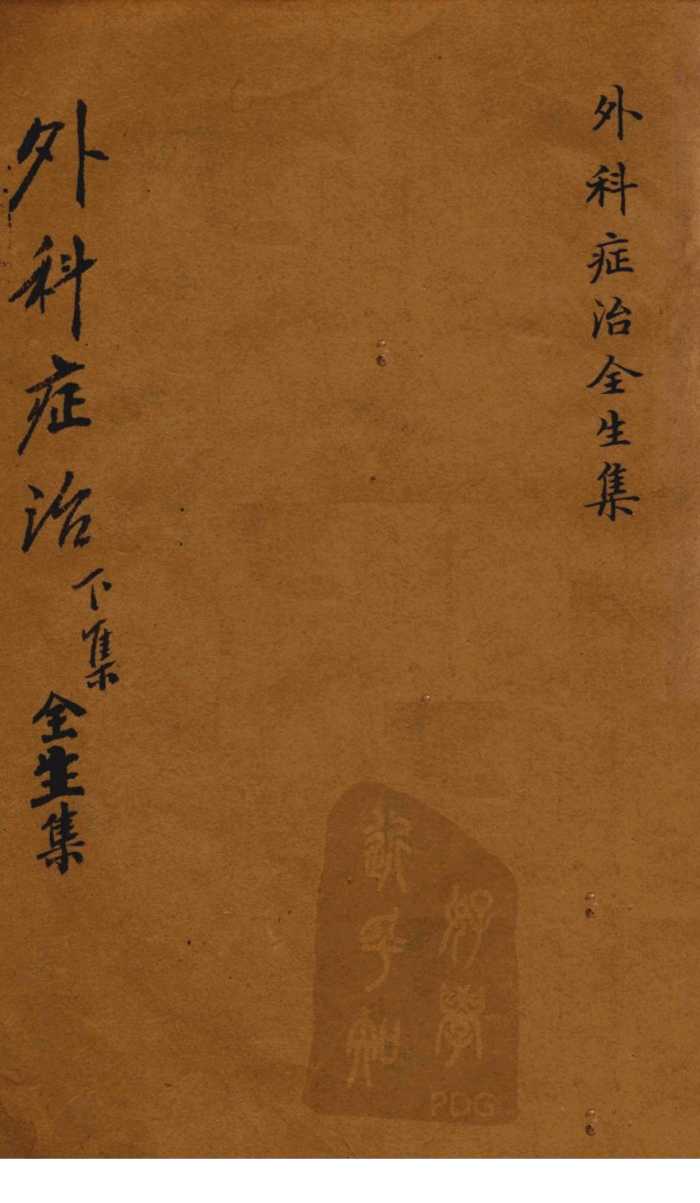 外科症治全生集
外科症治
下集
全生集
好學
PDG